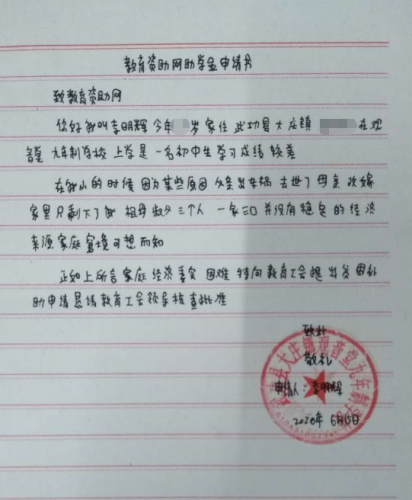 教育资助网助学金申请书
致教育资助网
您好 我叫李明辉 今年 岁 家住 武功县大庄镇 在观
音堂 九年制学校 上学是 一名初中生 学习成绩 较差
在我小的时候 因为某些原因 父亲 出车祸 去世了 母亲 改嫁
家里只剩下了我 祖母 叔父 三个人 一家三口 并没有稳定 的 经济
来源 家庭 窘境 可想而知
正如上所言 家庭 经济 困难 特向 教育工会 提出
助申请 恳请教育工会领导 核查批准
致此
敬礼
申请人:李明辉
2020年 6月15日
县大庄镇观音堂九年制学